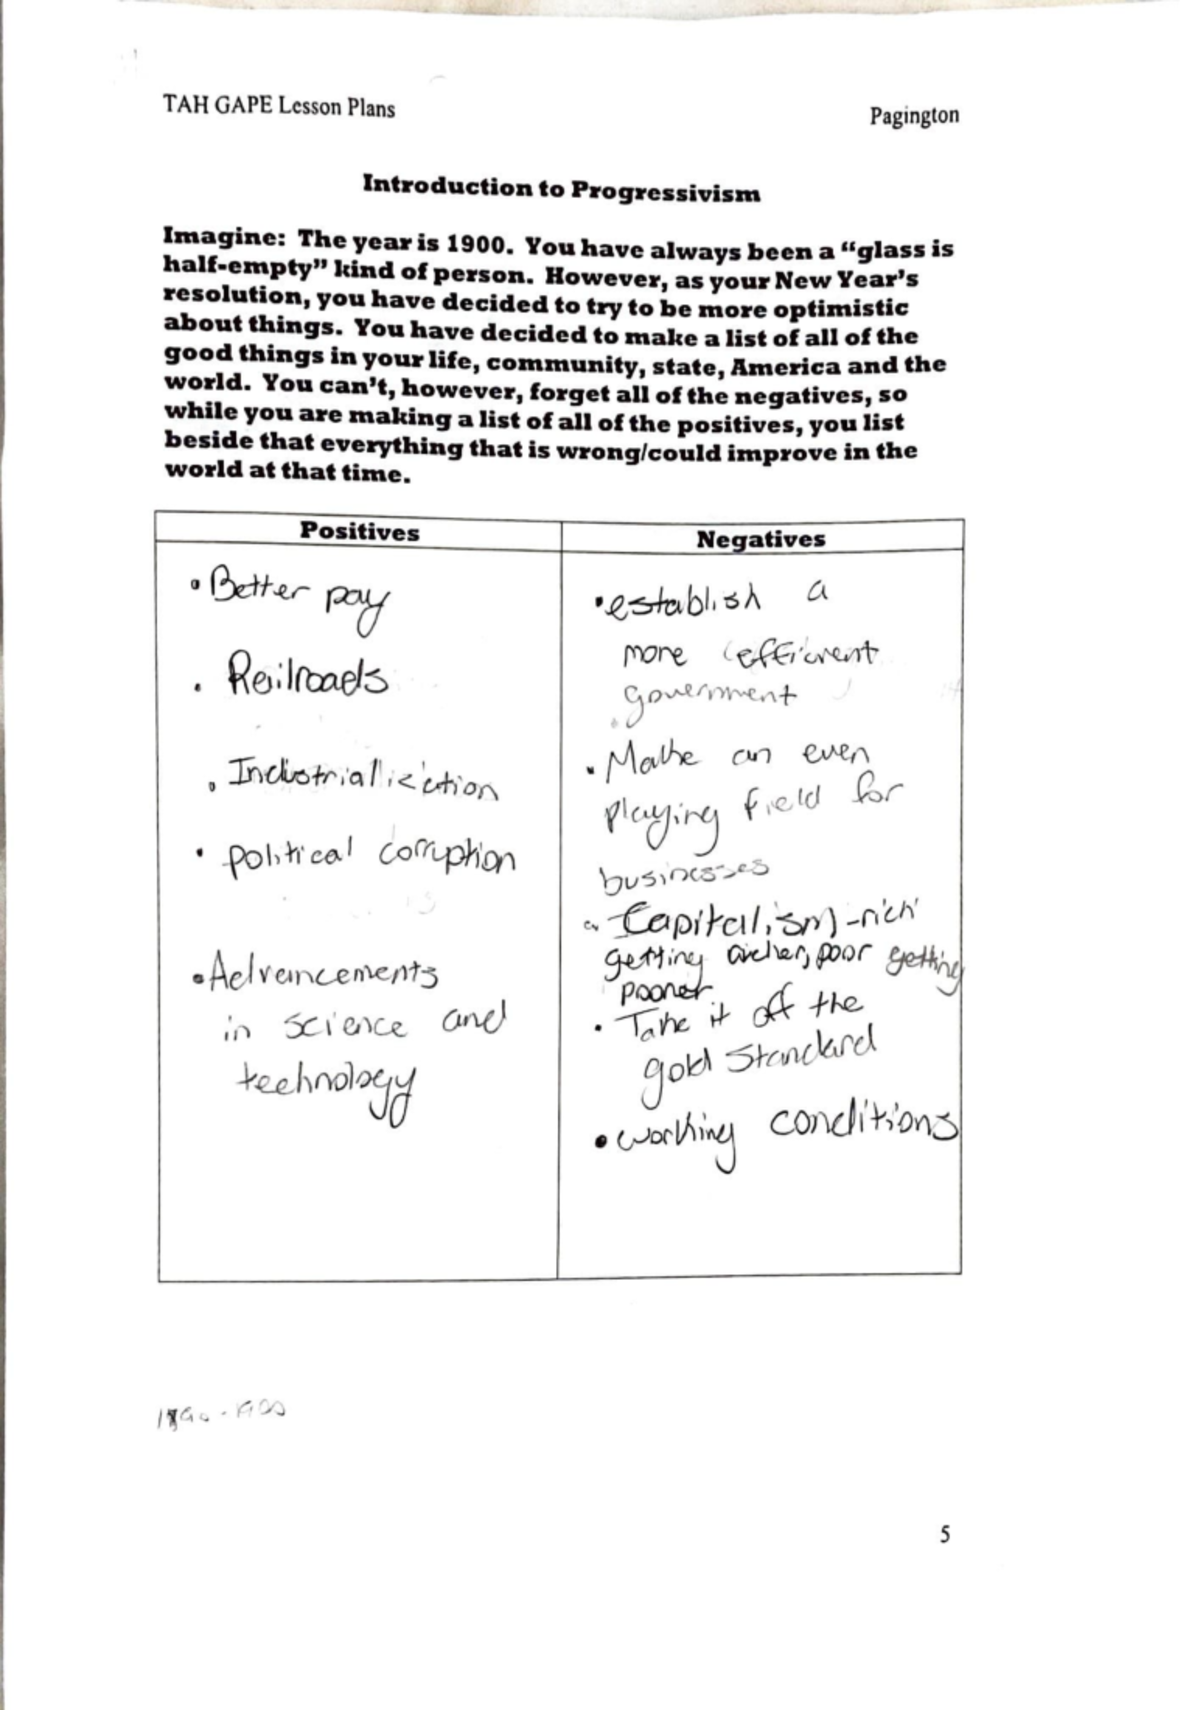 TAH GAPE Lesson Plans
Pagington
Introduction to Progressivism
Imagine: The year is 1900. You have always been a “glass is
half-empty” kind of person. However, as your New Year’s
resolution, you have decided to try to be more optimistic
about things. You have decided to make a list of all of the
good things in your life, community, state, America and the
world. You can’t, however, forget all of the negatives, so
while you are making a list of all of the positives, you list
beside that everything that is wrong/could improve in the
world at that time.
Positives
• Better pay
• Railroads
• Industrialization
• political corruption
• Advancements
in science and
technology
Negatives
• establish a
more efficient
government
• Make an even
playing field for
businesses
• Capitalism - rich
getting richer, poor getting
poorer
• Take it off the
gold Standard
• working conditions
5